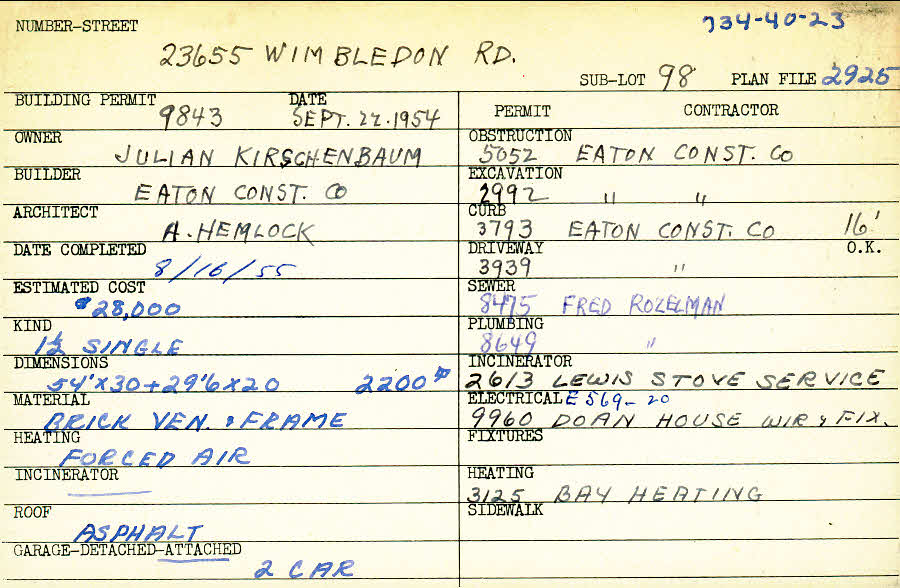 NUMBER-STREET
734-40-23
23655 WIMBLEDON RD.
SUB-LOT 98 PLAN FILE 2925
BUILDING PERMIT DATE
9843 SEPT. 22. 1954
OWNER
JULIAN KIRSCHENBAUM
BUILDER
EATON CONST. CO
ARCHITECT
A. HEMLOCK
DATE COMPLETED
8/16/55
ESTIMATED COST
$28,000
KIND
1½ SINGLE
DIMENSIONS
54'X30+29'6X20 2200#
MATERIAL
BRICK VEN. & FRAME
HEATING
FORCED AIR
INCINERATOR
ROOF
ASPHALT
GARAGE-DETACHED-ATTACHED
2 CAR
PERMIT CONTRACTOR
OBSTRUCTION
5052 EATON CONST. CO
EXCAVATION
2992 " "
CURB
3793 EATON CONST. CO 16'
DRIVEWAY O.K.
3939 "
SEWER
8475 FRED ROZELMAN
PLUMBING
8649 "
INCINERATOR
2613 LEWIS STOVE SERVICE
ELECTRICAL E569-20
9960 DOAN HOUSE WIR & FIX.
FIXTURES
HEATING
3125 BAY HEATING
SIDEWALK